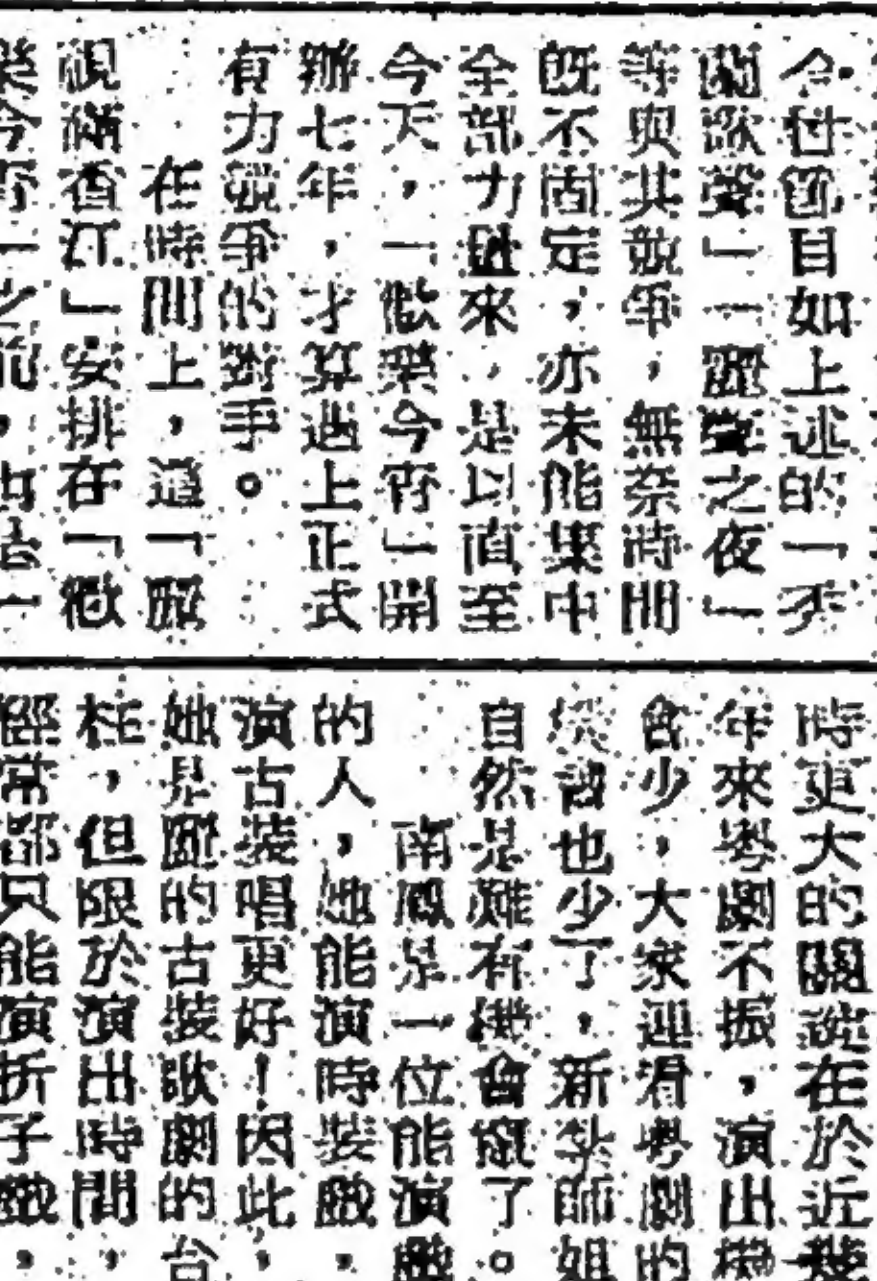 令性節目如上述的「天
關歌聲」「麗聲之夜」
等與其競爭,無奈時間
既不固定,亦未能集中
全部力量來,是以直至
今天,「歡樂今宵」開
辦七年,才算遇上正式
有力競爭的對手。
在時間上,這「麗
視滿香江」安排在「歡
樂今宵」之前,
時更大的關鍵在於近幾
年來粵劇不振,演出機
會少,大家連看粵劇的
機會也少了,新紮師姐
自然是難有機會竄了。
南鳳是一位能演戲
的人,她能演時裝戲,
演古裝唱更好!因此,
她是麗的古裝歌劇的台
柱,但限於演出時間,
經常都只能演折子戲,